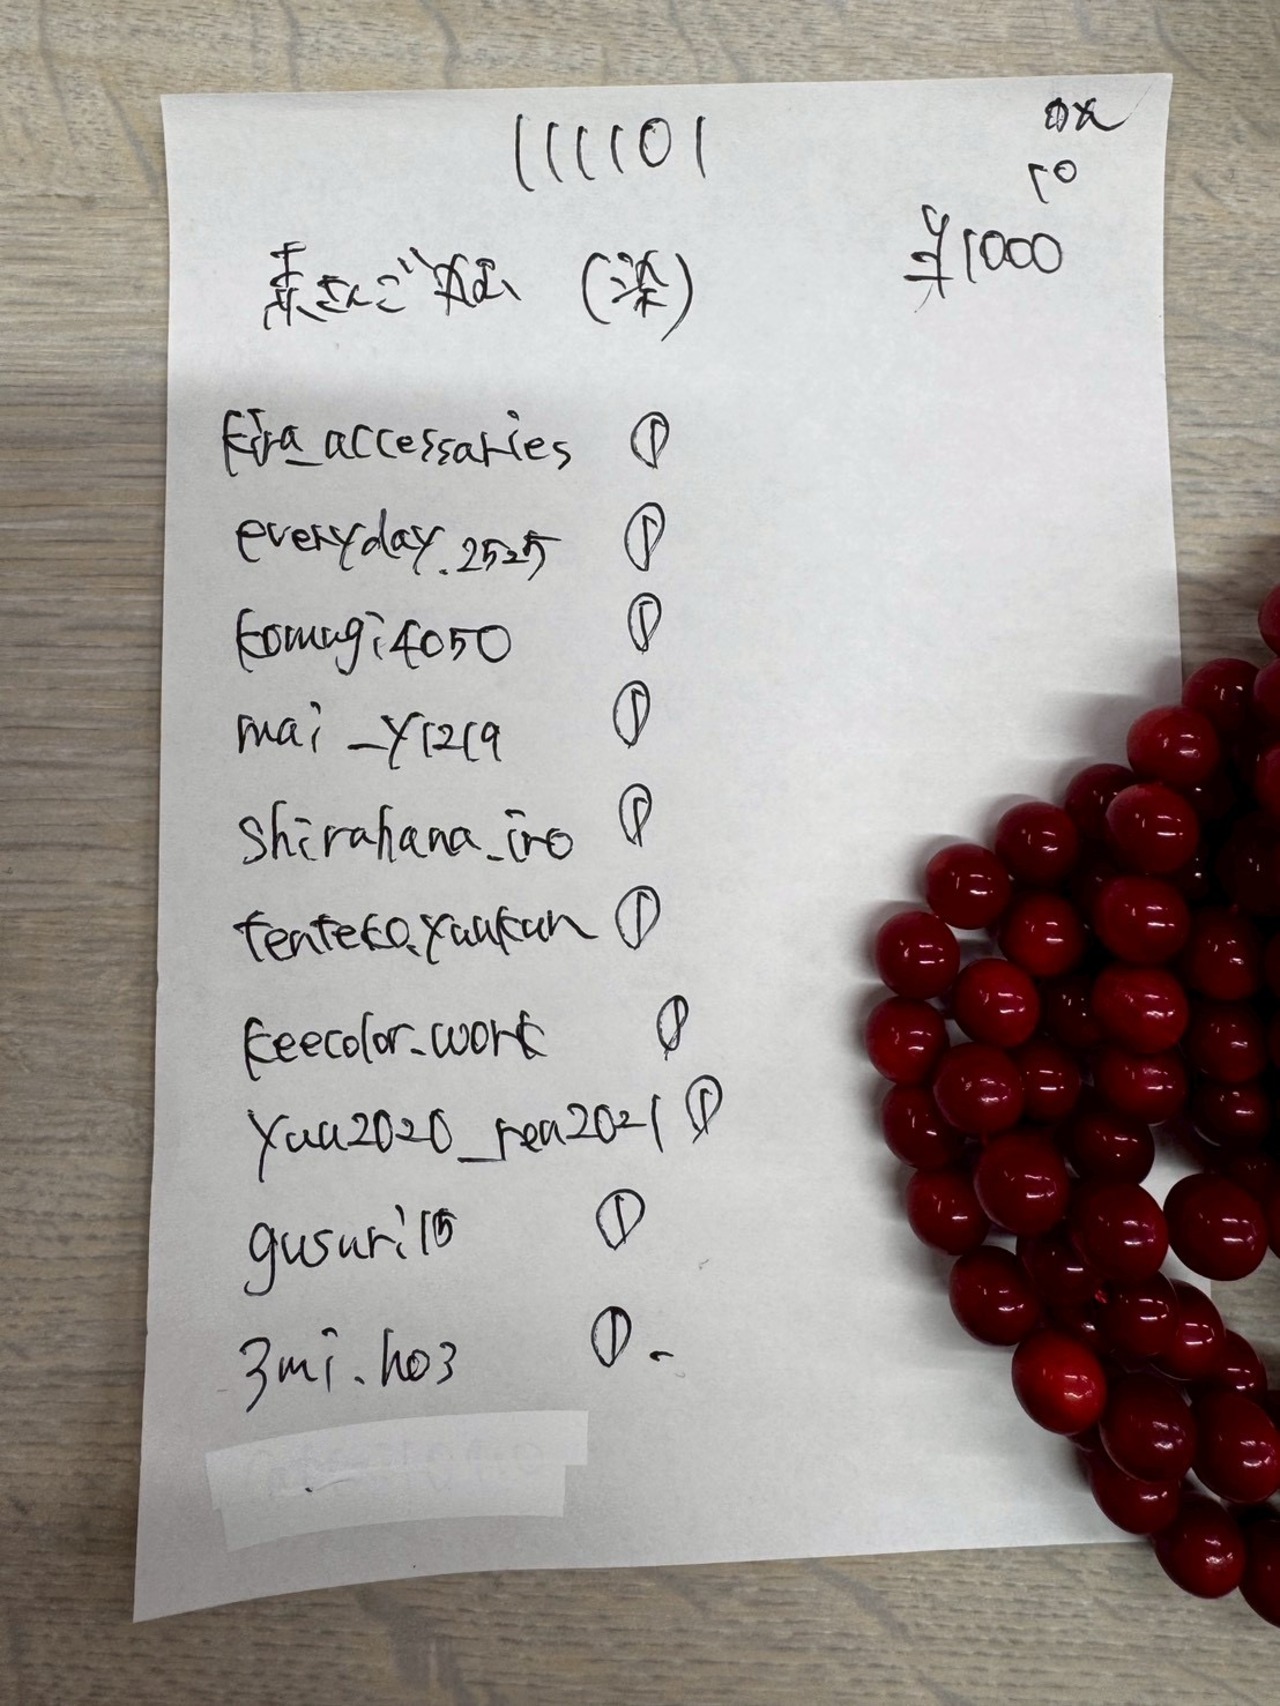 111101
ox
10
¥1000
赤さんご (染)
kira_accessaries ①
everyday.2525 ①
komugi4050 ①
mai_y1219 ①
shirahana_iro ①
tenteko.yuukun ①
keecolor.work ①
yuu2020_reu2021 ①
gusuri15 ①
3mi.ho3 ①